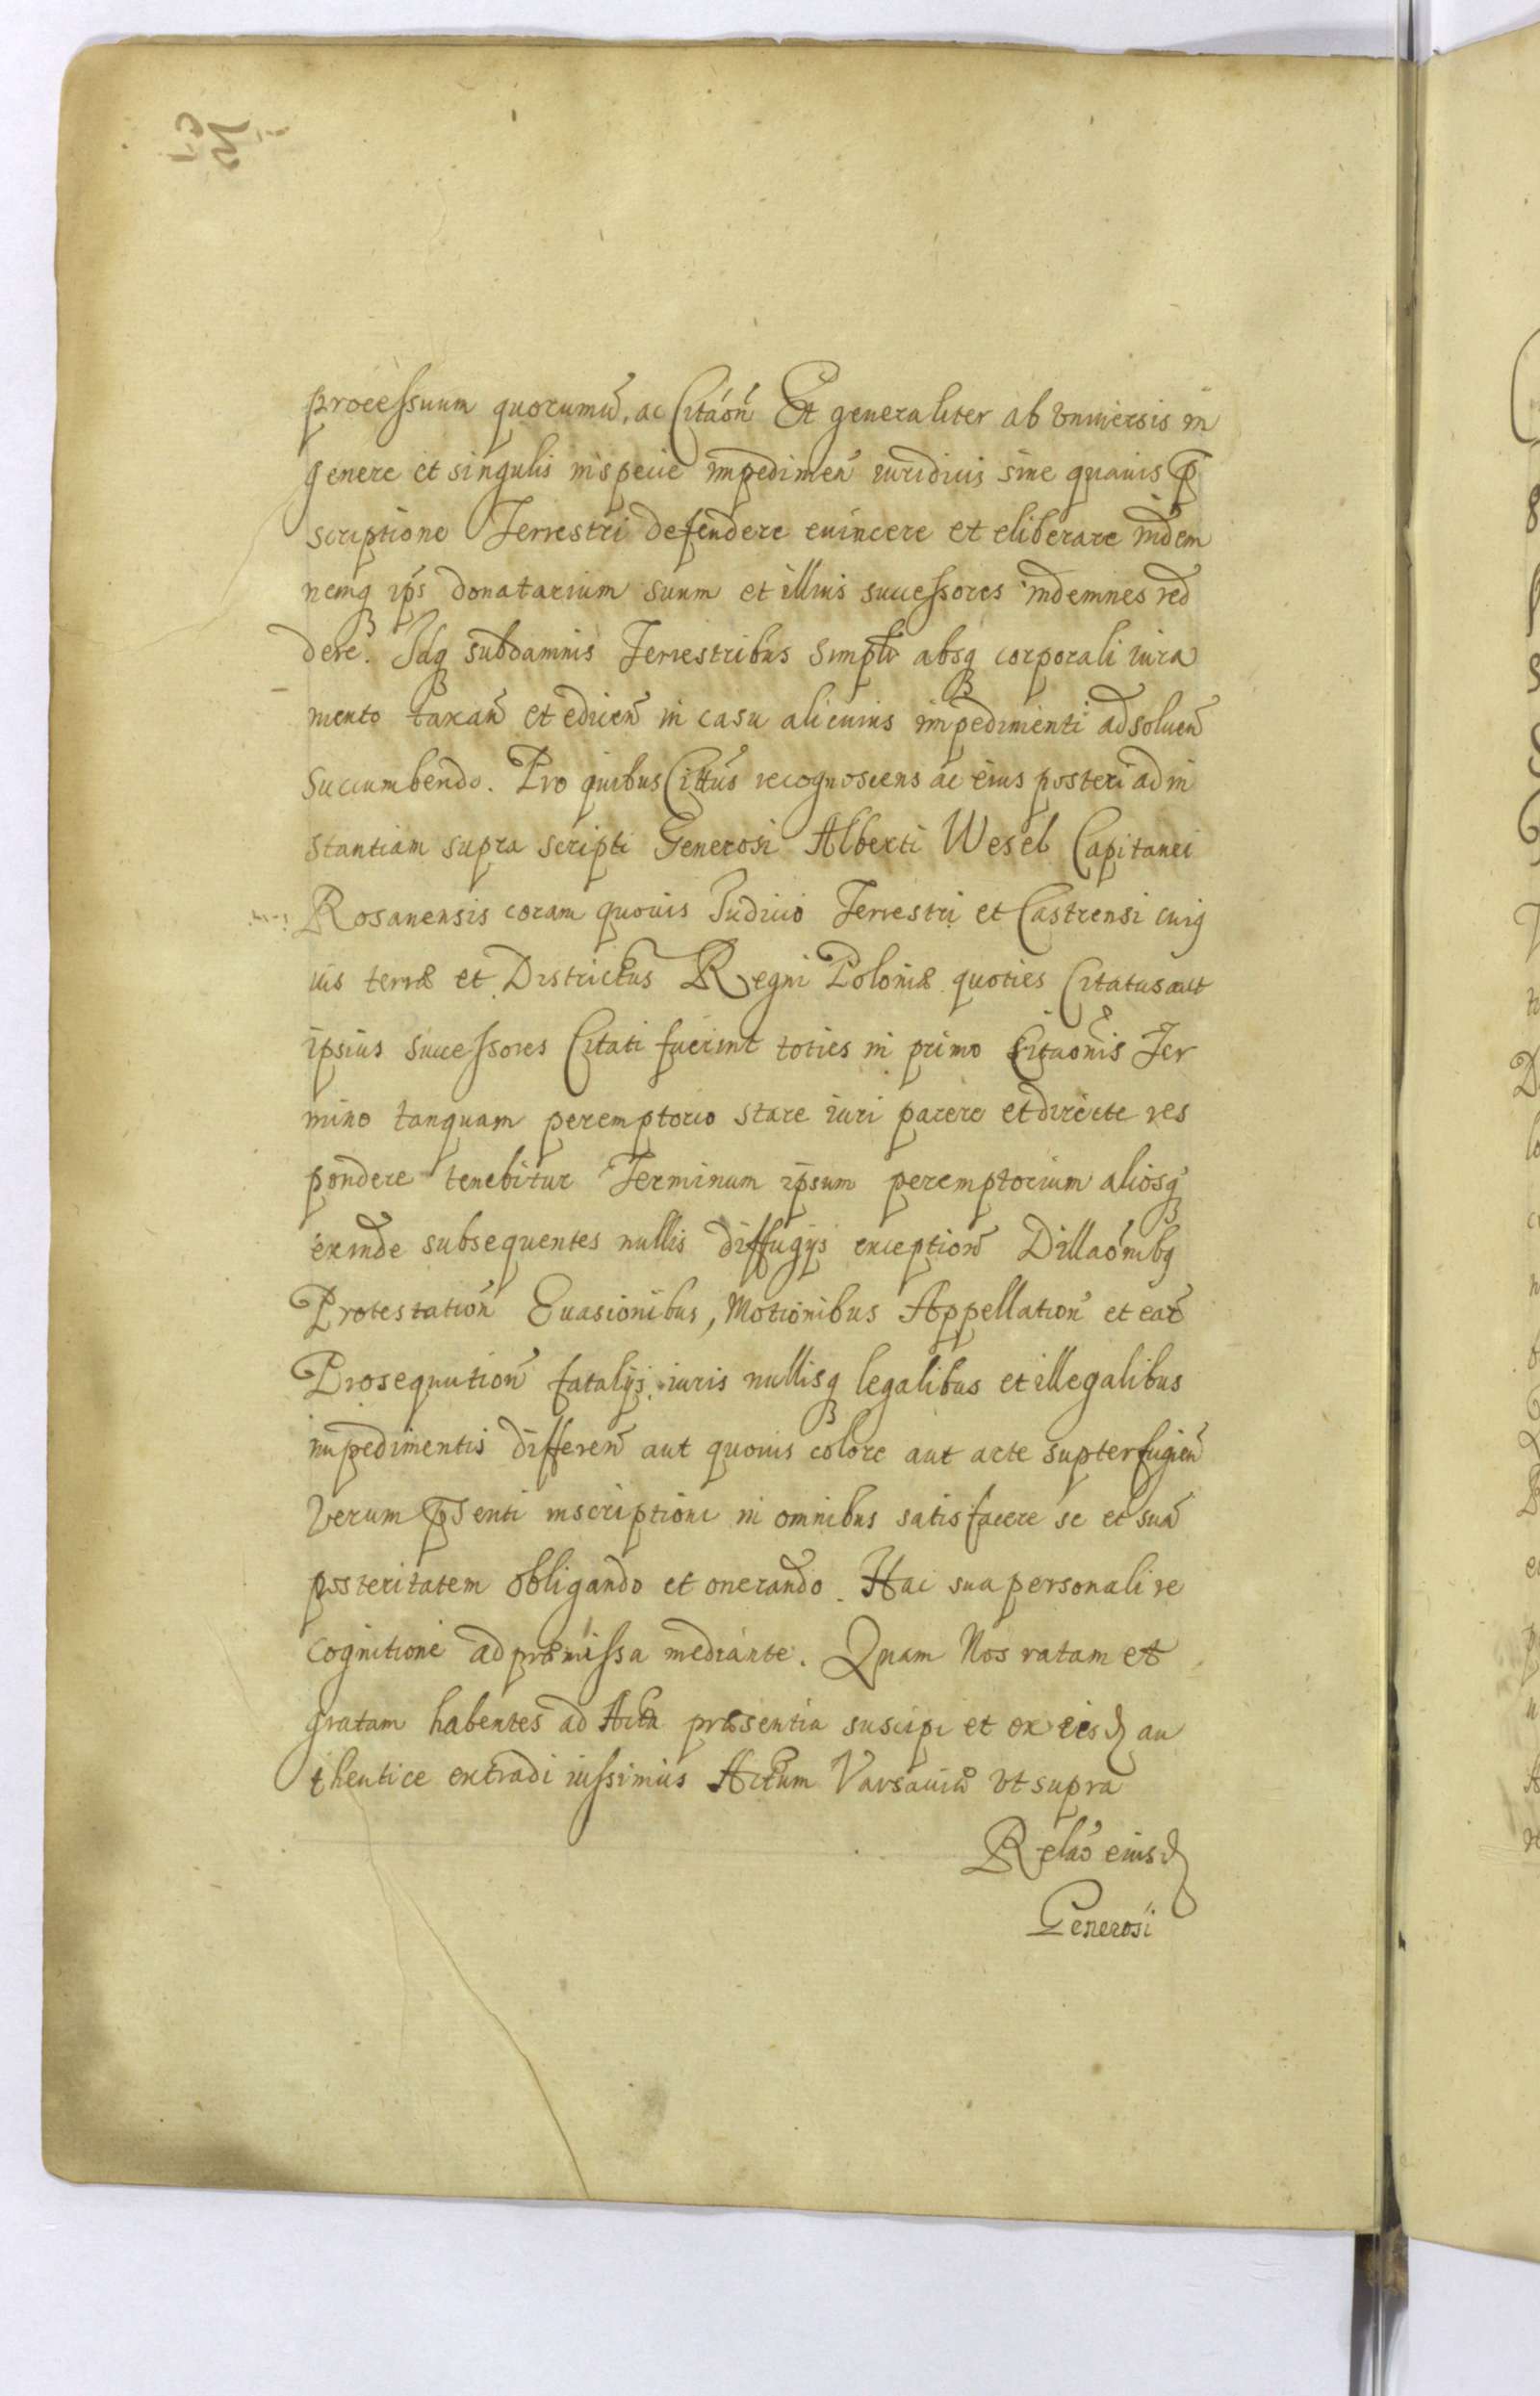 processuum quorumũ, ac Citãoñ Et generaliter ab vniuersis in
genere et singulis inspecie impedimeñ iuridicis sine quauis p̃
scriptione Terrestri defendere euincere et eliberare indem
nemq ip̃s donatarium suum et illius successores indemnes red
dere. Idq subdamnis Terrestribus simpłr absq corporali iura
mento taxañ et ediceñ in casu alicuius impedimenti adsolueñ
succumbendo. Pro quibus Citt̃us recognoscens ac eius posteri ad in
stantiam supra scripti Generosi Alberti Wesel Capitanei
Rosanensis coram quouis Iudicio Terrestri et Castrensi cuiq
uis terræ et Districtus Regni Poloniæ quoties Citatus aut
ipsius successores Citati fuerint toties in primo Citãonis Ter
mino tanquam peremptorio stare iuri parere et directe res
pondere tenebitur Terminum ipsum peremptorium aliosq
exinde subsequentes nullis diffugijs exceptioñ Dillaõnibq
Protestatioñ Euasionibus, Motionibus Appellatioñ et eaȓ
Prosequutioñ fatalijs iuris nullisq legalibus et illegalibus
impedimentis differeñ aut quouis colore aut arte supterfugieñ
Verum p̃senti inscriptioni in omnibus satisfacere se et suã
posteritatem obligando et onerando. Hac sua personali re
cognitione ad præmissa mediante. Quam Nos ratam et
gratam habentes ad Acta præsentia suscipi et ex eisd au
thentice extradi iussimus Actum Varsauiæ vt supra
Relaõ eiusd
Generosi